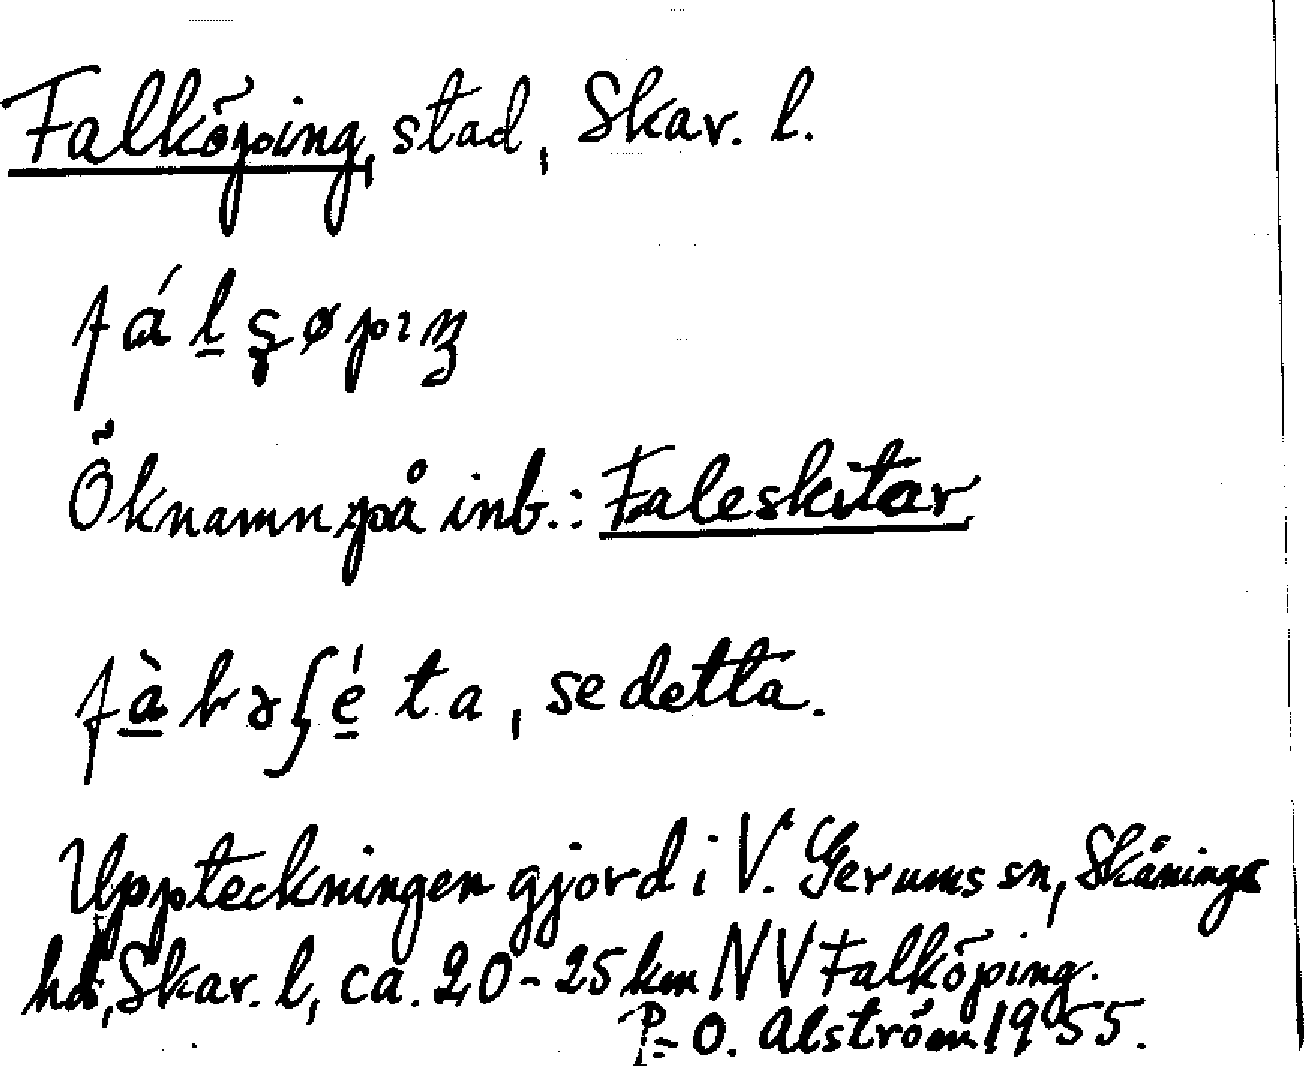 Falköping, stad, Skar. l.
fál̲şøpıŋ
Öknamn på inb.: Faleskitar,
fà̲ləʃé̲ta, se detta.
Uppteckningen gjord i V. Gerums sn, Skånings
hd, Skar. l, ca. 20-25 km NV Falköping.
P-O. Alström 1955.